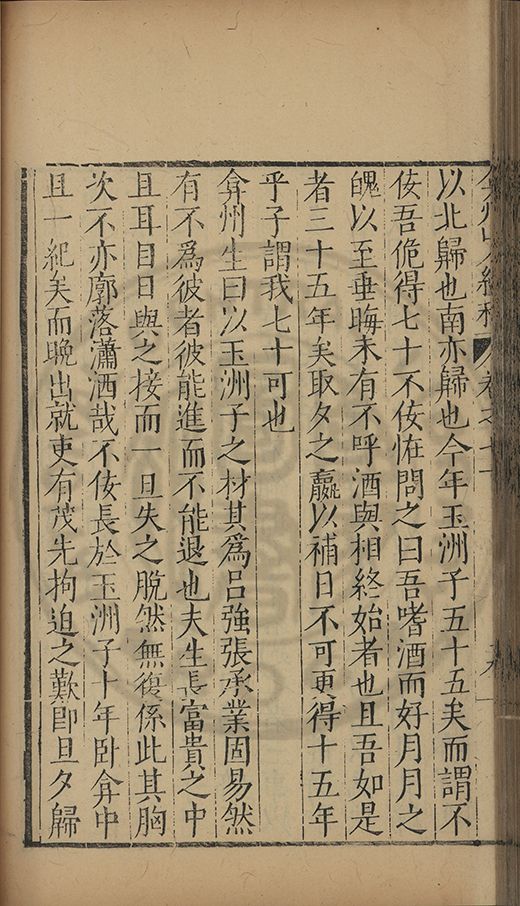 弇州山人續稿 卷之七十
以北歸也南亦歸也今年玉洲子五十五矣而謂不
佞吾佹得七十不佞恠問之曰吾嗜酒而好月月之
魄以至垂晦未有不呼酒與相終始者也且吾如是
者三十五年矣取夕之贏以補日不可更得十五年
乎子謂我七十可也
弇州生曰以玉洲子之材其爲呂強張承業固易然
有不爲彼者彼能進而不能退也夫生長富貴之中
且耳目日與之接而一旦失之脫然無復係此其胸
次不亦廓落瀟洒哉不佞長於玉洲子十年卧弇中
且一紀矣而晚出就吏有茂先拘迫之歎卽旦夕歸